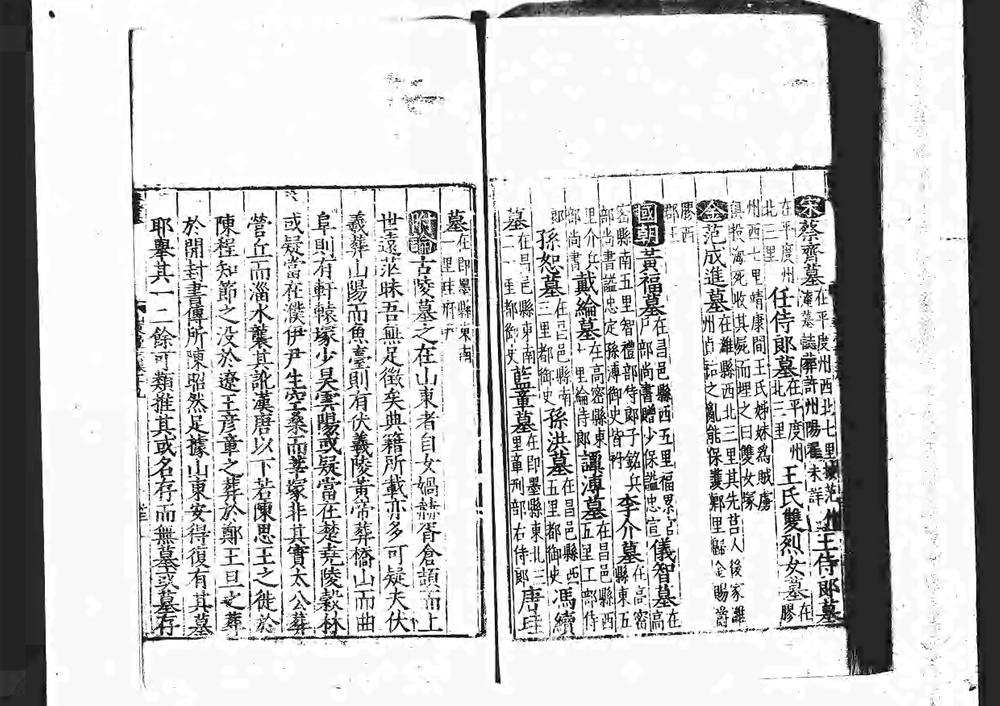 宋蔡齊墓在平度州西北七里墓誌葬許州陽翟未詳王侍郎墓
在平度州北二里任侍郎墓在平度州北三里王氏雙烈女墓在膠
州西七里靖康間王氏姊妹為賊虜
俱投海死收其屍而埋之曰雙女塚
金范成進墓在濰縣西北三里其先莒人後家濰州貞祐之亂能保護鄉里歸金賜爵
膠西郡王
國朝黃福墓在昌邑縣西五里福累官戶部尚書贈少保謚忠宣儀智墓在高
密縣南五里智禮部侍郎子銘兵部尚書謚忠定孫溥御史皆祔李介墓在高密縣東五
里介兵部尚書戴綸墓在高密縣東十里綸侍郎譚溥墓在昌邑縣西五里工部侍
郎孫恕墓在昌邑縣南三里都御史孫洪墓在昌邑縣西五里都御史馮續
墓在昌邑縣東南二十一里都御史藍章墓在即墨縣東北三里章刑部右侍郎唐珪
墓在即墨縣東南里珪府尹
附論古陵墓之在山東者自女媧赫胥倉頡而上
世遠茫昧吾無足徵矣典籍所載亦多可疑夫伏
羲葬山陽而魚臺則有伏羲陵黃帝葬橋山而曲
阜則有軒轅塚少昊雲陽或疑當在楚堯陵穀林
或疑當在濮伊尹生空桑而莘塚非其實太公葬
營丘而淄水襲其訛漢唐以下若陳思王之徙於
陳程知節之没於遼王彦章之葬於鄭王旦之葬
於開封書傳所陳昭然足據山東安得復有其墓
耶舉其一二餘可類推其或名存而無墓或墓存